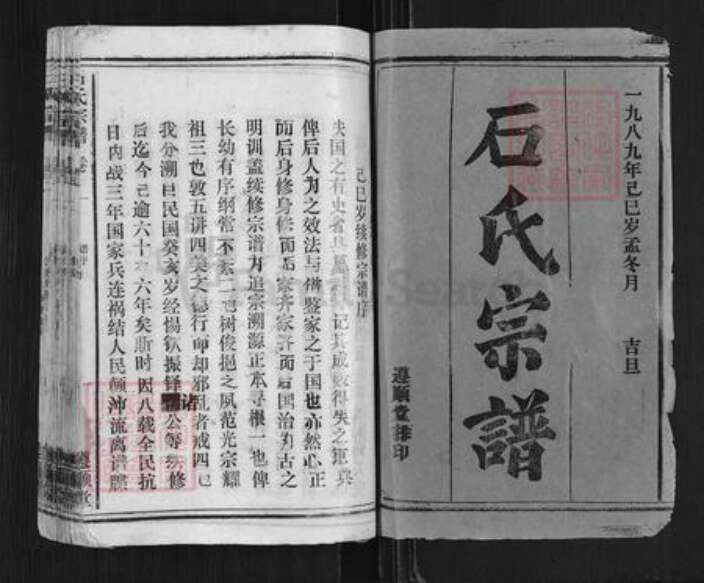 一九八九年己巳岁孟冬月 吉旦
石氏宗譜
遵顺堂排印
己巳岁续修宗谱序
夫国之有史者 记其成败得失之 典
俾后人为之效法与借鉴家之于国也亦然心正
而后身修身修而后家齐家齐而后国治为古之
明训盖续修宗谱为追宗溯源正本寻根一也俾
长幼有序纲常不紊二也树俊挹之夙范光宗耀
祖三也敦五讲四美之德行而却邪乱者戒四也
我分溯自民国癸亥岁经杨钦振铎诸公等续修
后迄今已逾六十有六年矣斯时因八载全民抗
日内战三年国家兵连祸结人民颠沛流离谱牒
石氏宗谱 卷一
遵顺堂